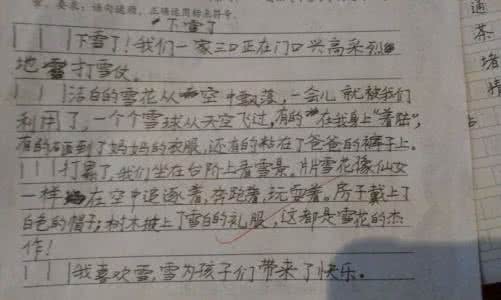 字，要求：语句通顺，正确运用标点符号。
下雪了
下雪了！我们一家三口正在门口兴高采烈
地打雪仗。
洁白的雪花从空中飘落，一会儿就被我们
利用了，一个个雪球从天空飞过，有的在我身上“着陆”，
有的砸到了妈妈的衣服，还有的粘在了爸爸的裤子上。
打累了，我们坐在台阶上看雪景。片片雪花像仙女
一样在空中追逐着，奔跑着，玩耍着。房子戴上了
白色的帽子；树木披上了雪白的礼服，这都是雪花的杰
作！
我喜欢雪，雪为孩子们带来了快乐。
通
茶
堵
情